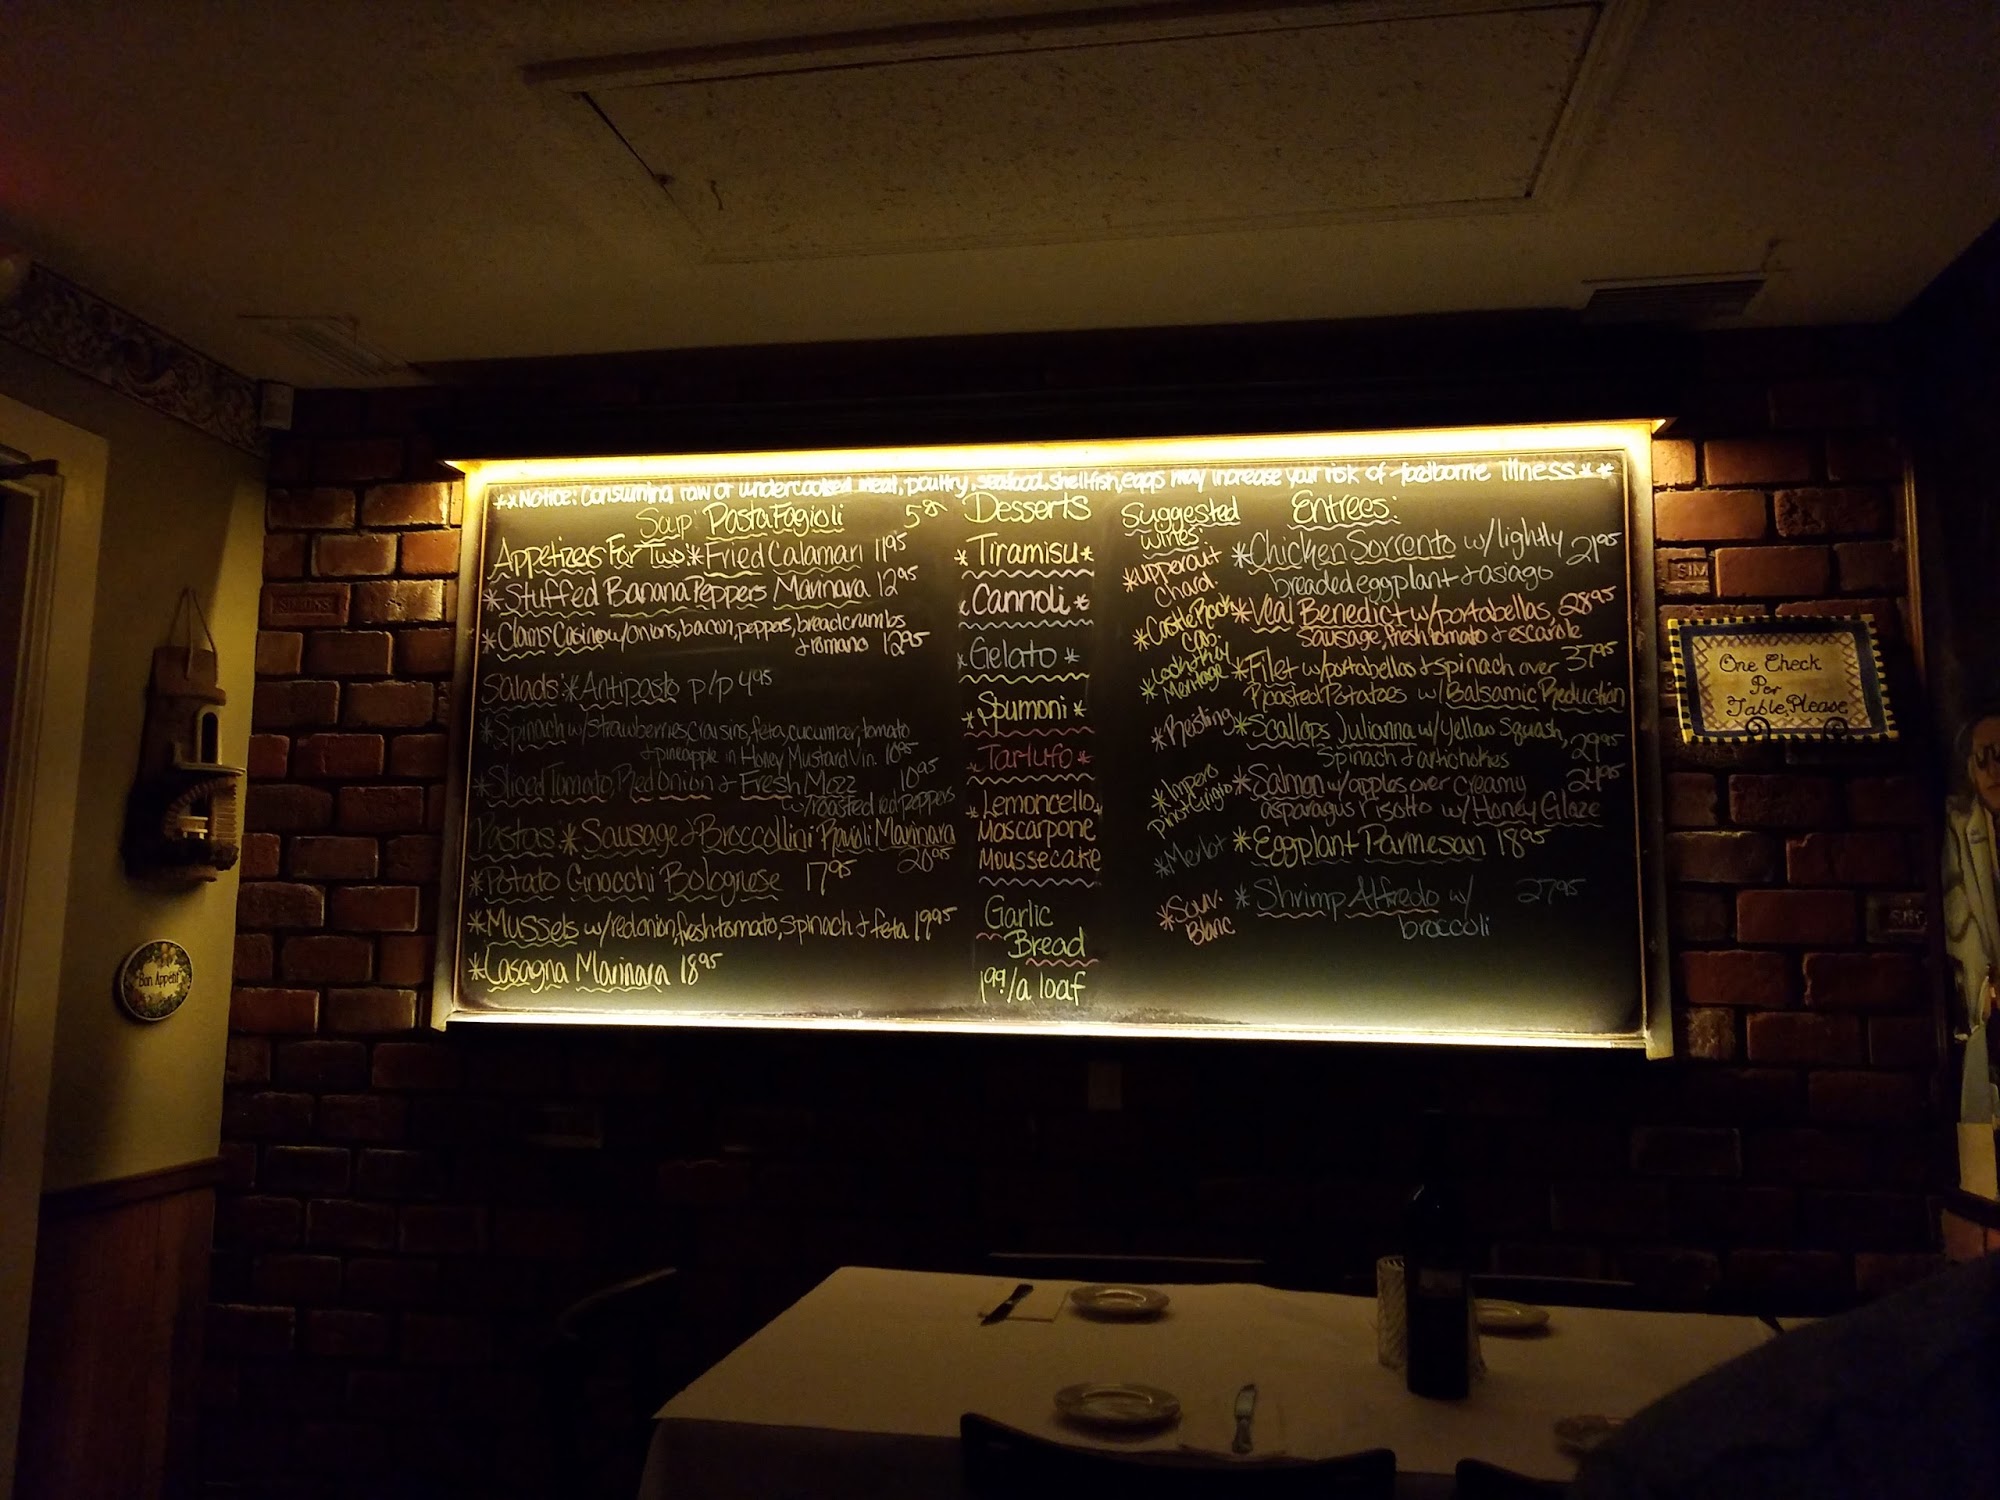 **Notice: Consuming raw or undercooked meat, poultry, seafood, shellfish, eggs may increase your risk of foodborne illness**
Soup: Pasta Fagioli
Appetizers For Two: *Fried Calamari 11.95
*Stuffed Banana Peppers Marinara 12.95
*Clams Casino w/onions, bacon, peppers, breadcrumbs
& romano 12.95
Salads: *Antipasto p/p 4.95
*Spinach w/strawberries, craisins, feta, cucumber, tomato
& pineapple in Honey Mustard Vin. 10.95
*Sliced Tomato, Red Onion & Fresh Mozz 10.95
w/roasted red peppers
Pastas: *Sausage & Broccollini Ravioli Marinara
20.95
*Potato Gnocchi Bolognese 17.95
*Mussels w/redonion, fresh tomato, spinach & feta 19.95
*Lasagna Marinara 18.95
Desserts
*Tiramisu*
*Cannoli*
*Gelato*
*Spumoni*
*Tartufo*
*Lemoncello*
Mascarpone
Moussecake
Garlic
Bread
1.99/a loaf
Suggested
Wines:
*uppercut
Chard.
*Castle Rock
Cab.
*
Meritage
*Reisling
*Impero
pinot Grigio
*Merlot
*Sauv.
Blanc
Entrees:
*Chicken Sorrento w/lightly 21.95
breaded eggplant & asiago
*Veal Benedict w/portabellas, 28.95
sausage, fresh tomato & escarole
*Filet w/portabellas & spinach over 37.95
Roasted Potatoes w/Balsamic Reduction
*Scallops Julianna w/Yellow Squash, 29.95
Spinach & artichokes
*Salmon w/apples over creamy 24.95
asparagus risotto w/Honey Glaze
*Eggplant Parmesan 18.95
*Shrimp Alfredo w/ 27.95
broccoli
One Check
Per
Table, Please
Bon Appetit